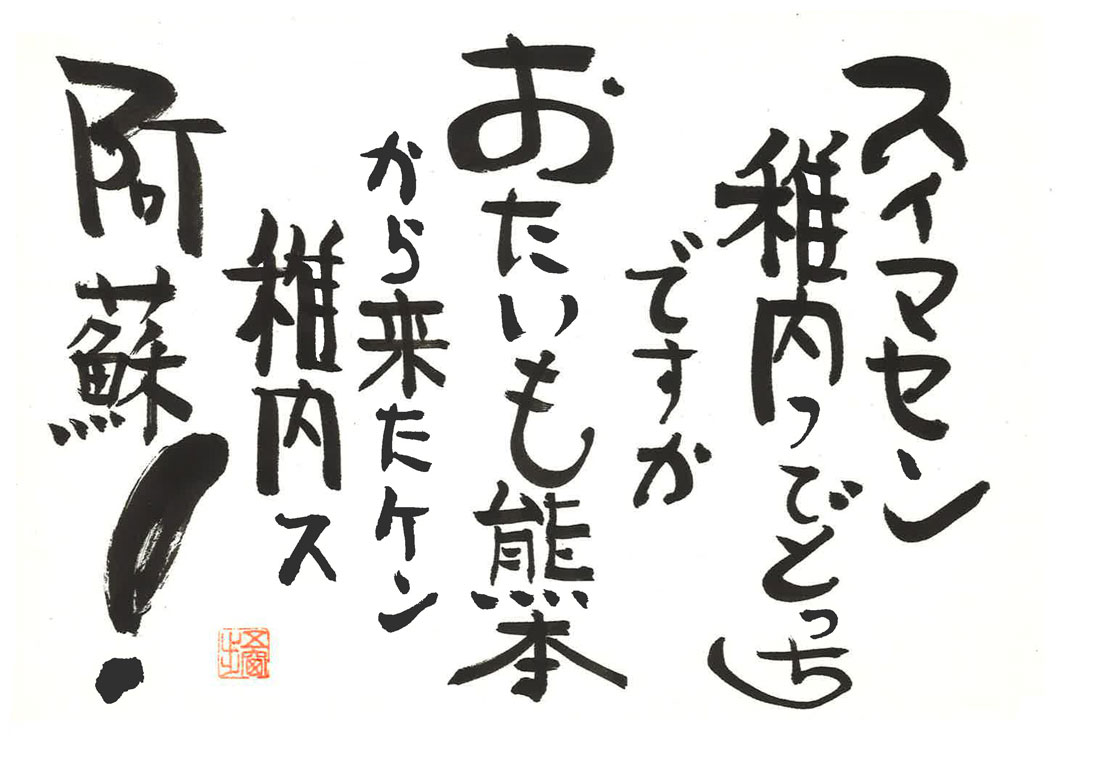 スイマセン
稚内ってどっち
ですか
おたいも熊本
から来たケン
稚内ス
阿蘇！